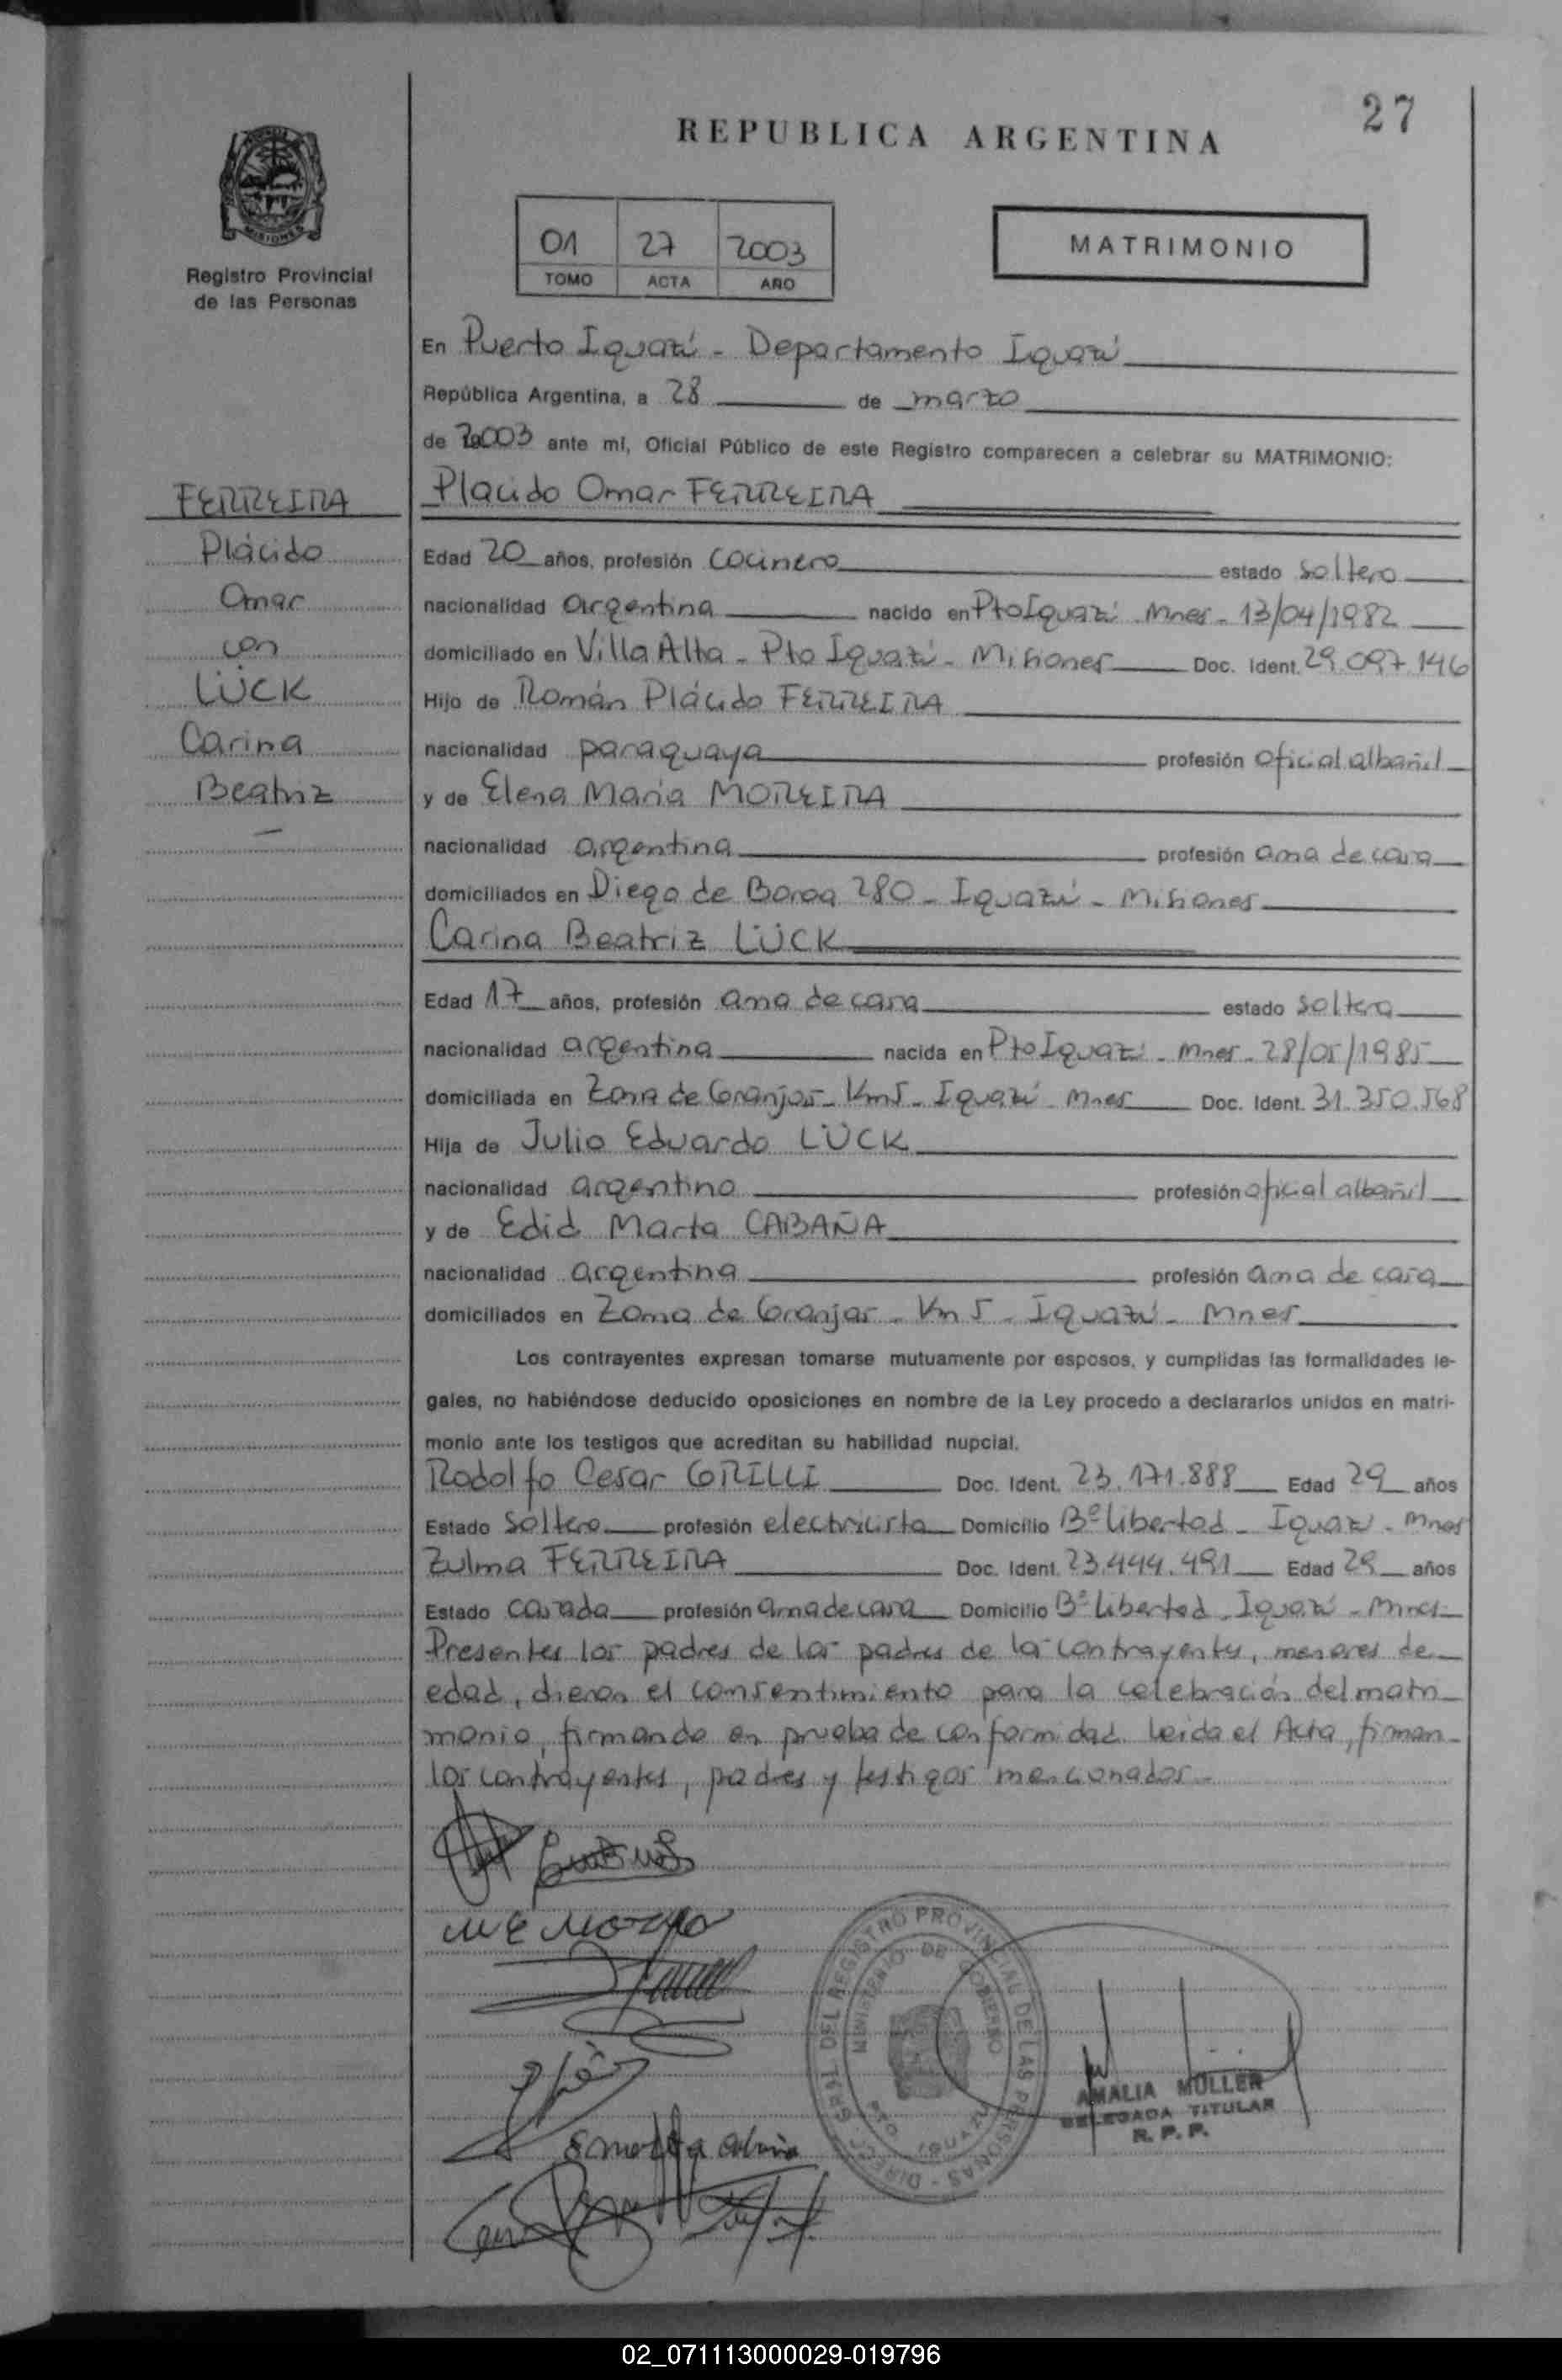 27
REPUBLICA ARGENTINA
MISIONES
Registro Provincial
de las Personas
01 27 2003
TOMO ACTA AÑO
MATRIMONIO
En Puerto Iguazú - Departamento Iguazú
República Argentina, a 28 de marzo
de 2003 ante mí, Oficial Público de este Registro comparecen a celebrar su MATRIMONIO:
FERREIRA
Plácido
Omar
con
LÜCK
Carina
Beatriz
Placido Omar FERREIRA
Edad 20 años, profesión cocinero estado soltero
nacionalidad argentina nacido en Pto Iguazú - Mnes - 13/04/1982
domiciliado en Villa Alta - Pto Iguazú - Misiones Doc. Ident. 29.097.146
Hijo de Román Plácido FERREIRA
nacionalidad paraguaya profesión oficial albañil
y de Elena María MOREIRA
nacionalidad argentina profesión ama de casa
domiciliados en Diego de Boroa 280 - Iguazú - Misiones
Carina Beatriz LÜCK
Edad 17 años, profesión ama de casa estado soltera
nacionalidad argentina nacida en Pto Iguazú - Mnes - 28/05/1985
domiciliada en Zona de Granjas - Km 5 - Iguazú - Mnes Doc. Ident. 31.350.568
Hija de Julio Eduardo LÜCK
nacionalidad argentino profesión oficial albañil
y de Edid Marta CABAÑA
nacionalidad argentina profesión ama de casa
domiciliados en Zona de Granjas - Km 5 - Iguazú - Mnes
Los contrayentes expresan tomarse mutuamente por esposos, y cumplidas las formalidades le-
gales, no habiéndose deducido oposiciones en nombre de la Ley procedo a declararlos unidos en matri-
monio ante los testigos que acreditan su habilidad nupcial.
Rodolfo Cesar GRILLI Doc. Ident. 23.171.888 Edad 29 años
Estado soltero profesión electricista Domicilio Bº libertad - Iguazú - Mnes
Zulma FERREIRA Doc. Ident. 23.444.491 Edad 29 años
Estado casada profesión ama de casa Domicilio Bº Libertad - Iguazú - Mnes
Presentes los padres de los padres de los contrayentes, menores de
edad, dieron el consentimiento para la celebración del matri
monio, firmando en prueba de conformidad. Leida el Acta, firman
los contrayentes, padres y testigos mencionados.-
DIREC. GRAL. DEL REGISTRO PROVINCIAL DE LAS PERSONAS
MINISTERIO DE GOBIERNO
PTO IGUAZU
AMALIA MULLER
DELEGADA TITULAR
R. P. P.
02_071113000029-019796